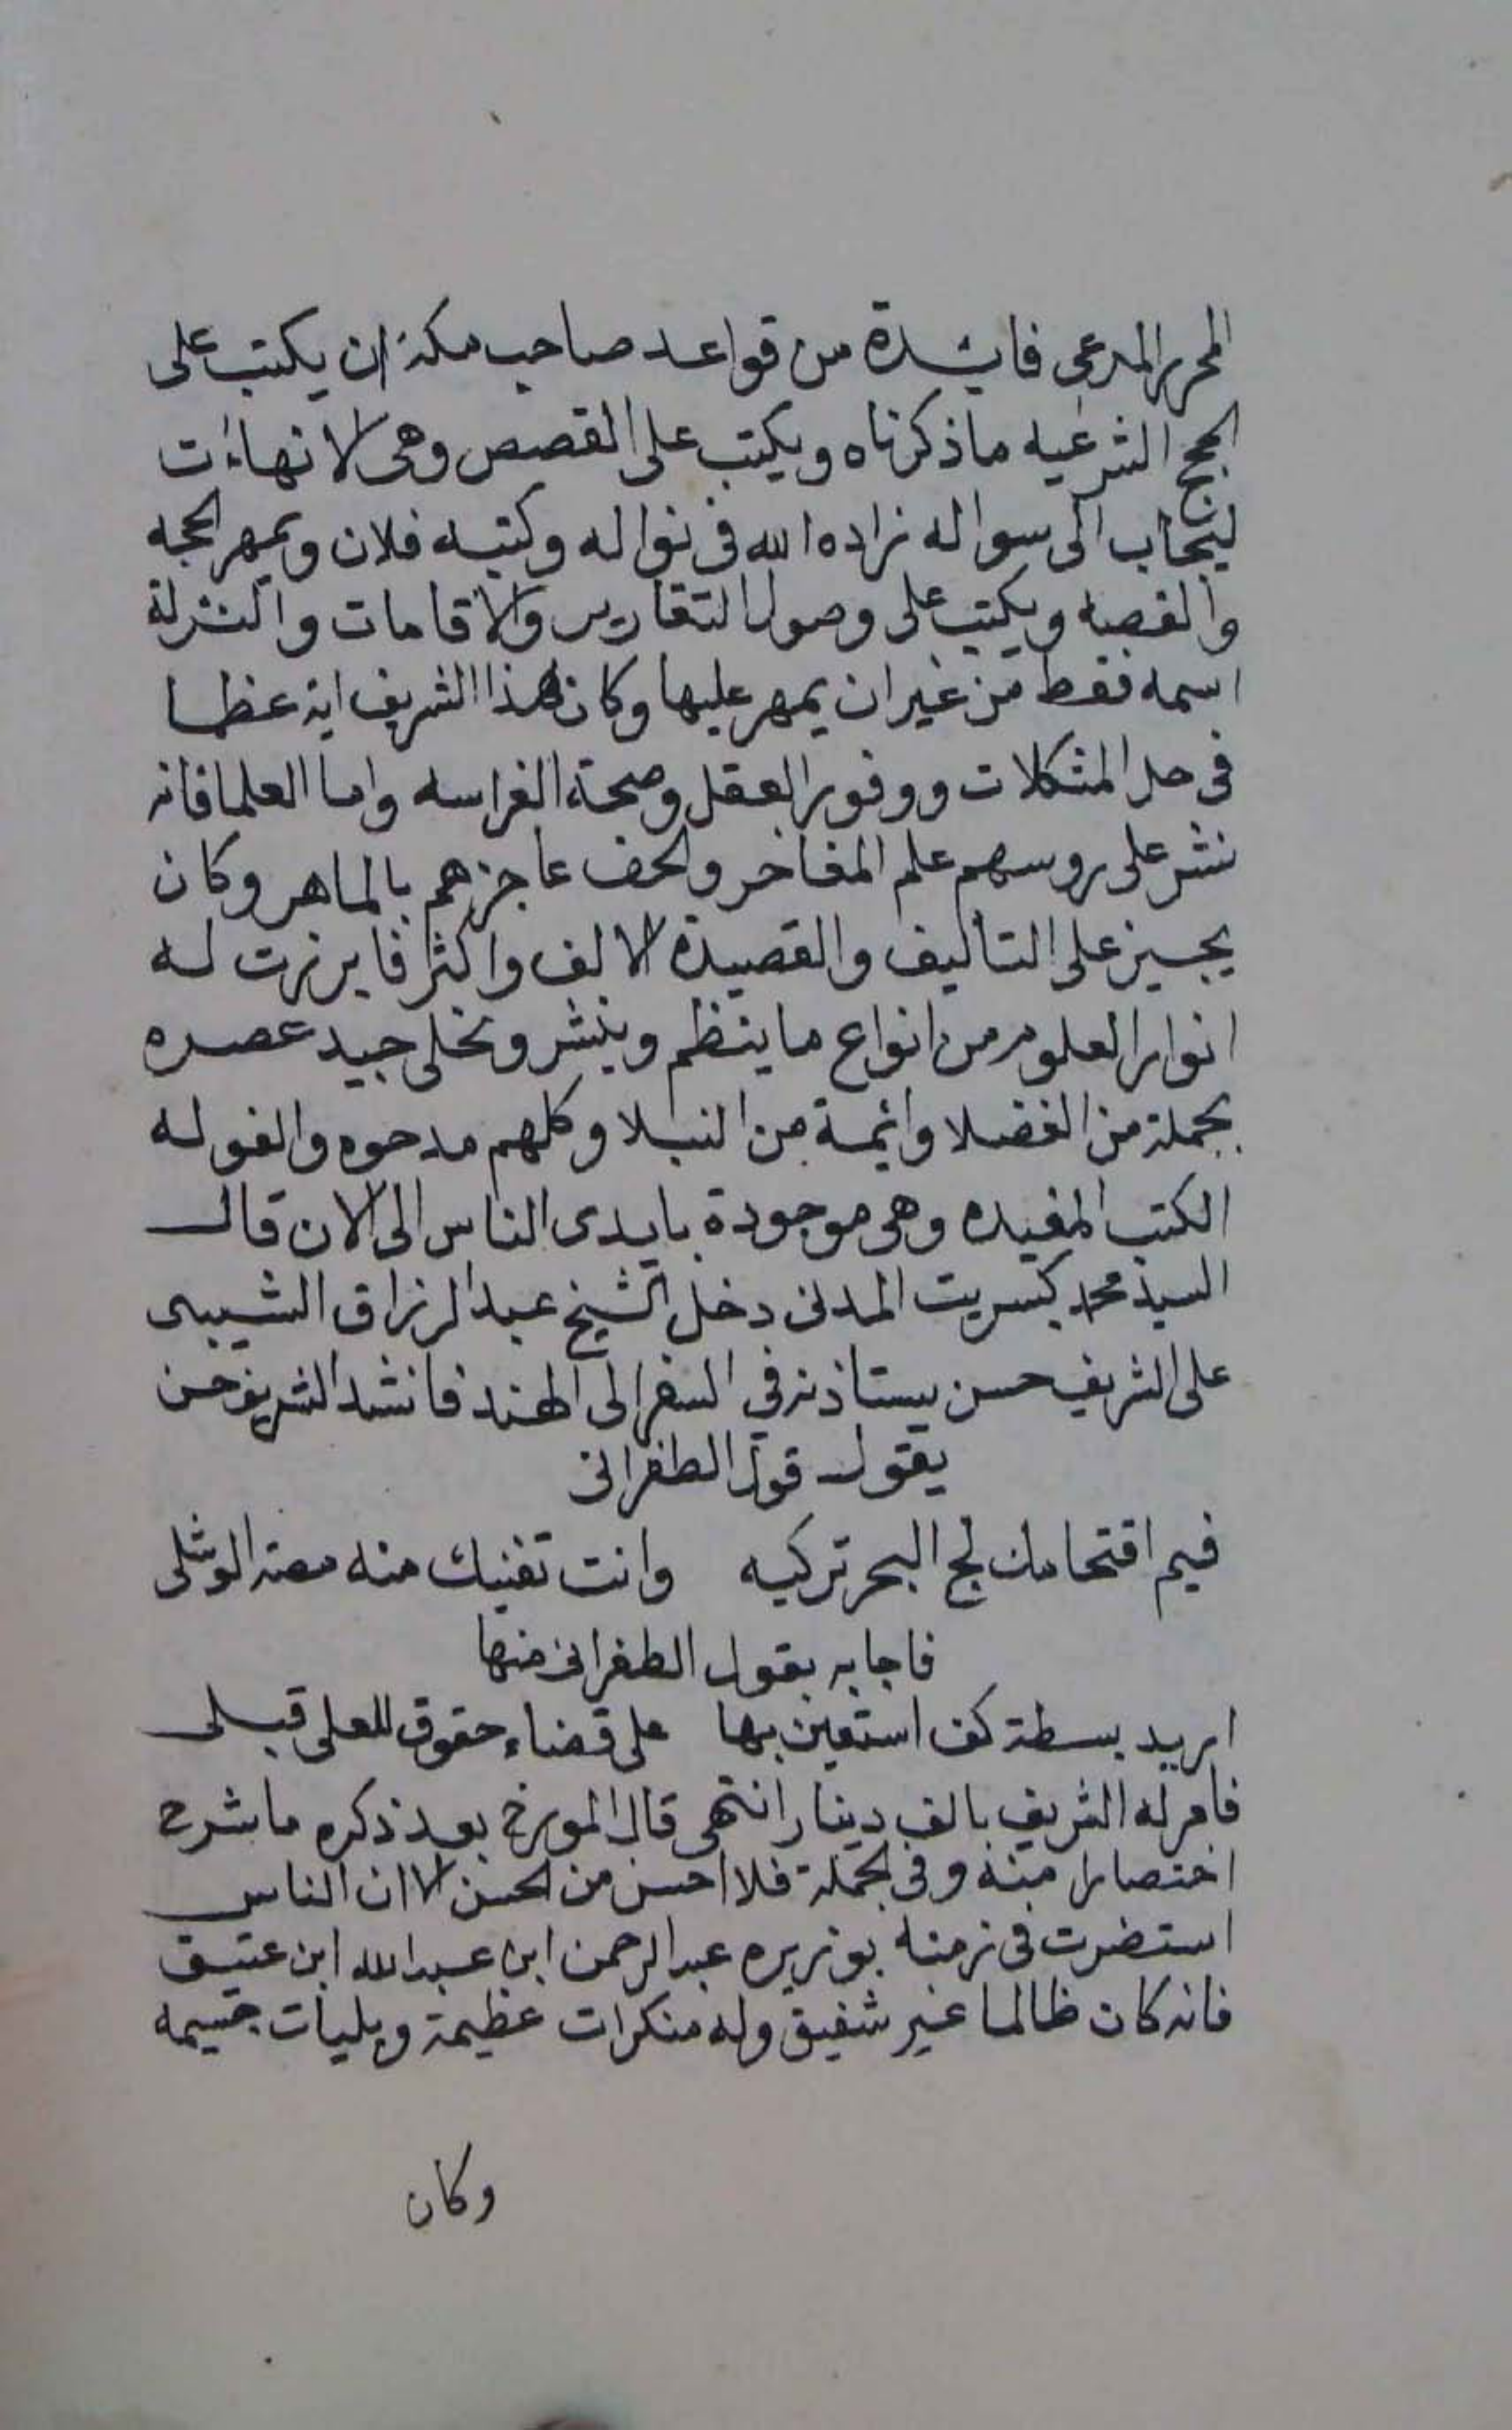 المحرر المرعى فايدة من قواعد صاحب مكة ان يكتب على
الحجج الشرعيه ماذكرناه ويكتب على القصص وهى الانهاءات
ليجاب الى سواله زاده الله فى نواله وكتبه فلان ويمهر الحجه
والقصه ويكتب على وصول التقارير والاقامات والنزلة
اسمه فقط من غير ان يمهر عليها وكان هذا الشريف اية عظما
فى حل المشكلات ووفور العقل وصحة الفراسه واما العلما فانه
نشر على روسهم علم المفاخر والحف عاجزهم بالماهر وكان
يجيز على التاليف والقصيدة الالف واكثر فابرزت له
انوار العلوم من انواع ماينظم وينشر وتحلى جيد عصره
بجملة من الفضلا وائمة من النبلا وكلهم مدحوه والفوله
الكتب المفيده وهى موجودة بايدى الناس الى الان قال
السيد محمد كبريت المدنى دخل الشيخ عبد الرزاق الشيبى
على الشريف حسن يستاذنه في السفر الى الهند فانشد الشريف حسن
يقول قول الطغرائى
فيم اقتحامك لج البحر تركبه وانت تغنيك منه مصة الوشلى
فاجابه بقول الطغرائى منها
اريد بسطة كف استعين بها على قضاء حقوق للعلى قبلى
فامر له الشريف بالف دينار انتهى قال المورخ بعد ذكره ماشرح
اختصارا منه وفى الجملة فلا احسن من الحسن الا ان الناس
استضرت فى زمنه بوزيره عبد الرحمن ابن عبد الله ابن عتيق
فانه كان ظالما غير شفيق وله منكرات عظيمة وبليات جسيمه
وكان